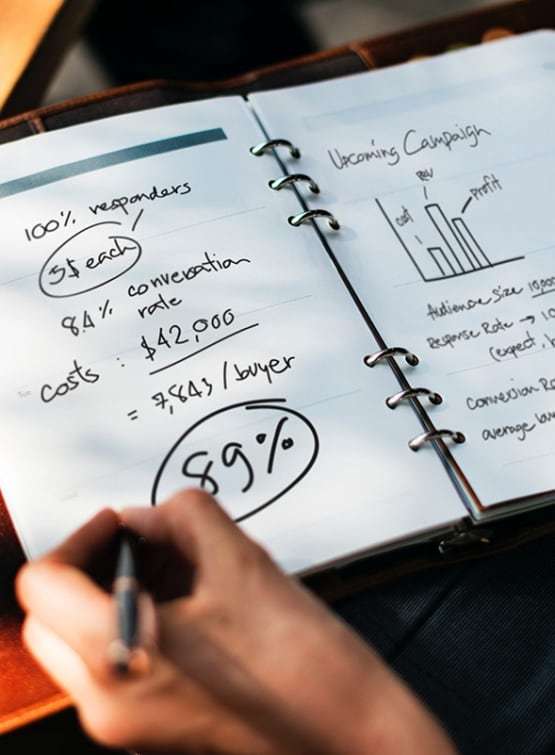 100% responders
5$ each
84% conversation
rate
costs : $42,000
= 7,843 / buyer
89%
Upcoming Campaign
cost
Rev
Profit
Audience Size 10,000
Response Rate → 10
(expect,
Conversion
average